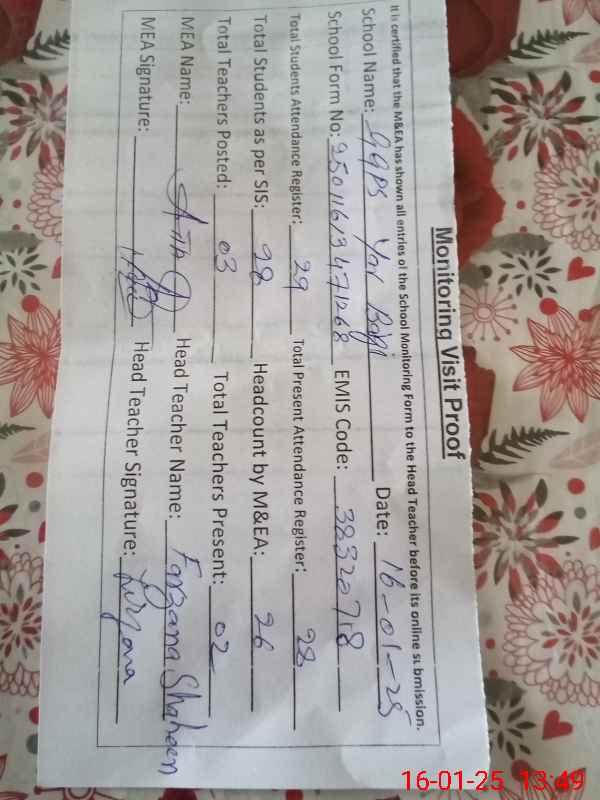 Monitoring Visit Proof
It is certified that the M&EA has shown all entries of the School Monitoring Form to the Head Teacher before its online submission.
School Name: GGPS Yar Baqi Date: 16-01-25
School Form No: 2501161347 1268 EMIS Code: 38320718
Total Students Attendance Register: 29 Total Present Attendance Register: 28
Total Students as per SIS: 28 Headcount by M&EA: 26
Total Teachers Posted: 03 Total Teachers Present: 02
MEA Name: Head Teacher Name: Farzana Shaheen
MEA Signature: Head Teacher Signature: Farzana
16-01-25 13:49